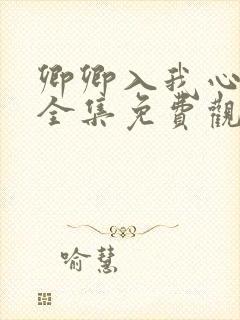 卿卿入我心
全集免費觀
喻慧